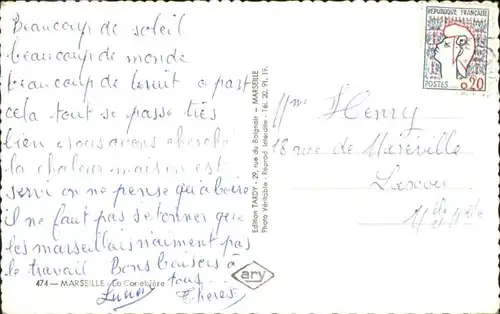 Beaucoup de soleil
beaucoup de monde
beaucoup de bruit a part
cela tout se passe très
bien nous avons cherché
la chaleur mais on est
servi on ne pense qu'a boire
il ne faut pas s'etonner que
les marseillais n'aiment pas
le travail Bons baisers à
tous
Therese
474 — MARSEILLE - La Canebière
Edition TARDY - 29, rue du Baignoir - MARSEILLE
Photo Véritable - Reprod. Interdite - Tél. 20. 91. 19.
ary
REPUBLIQUE FRANÇAISE
POSTES 0,20
Mme Henry
18 rue de Maréville
Laxou
M[eur]the